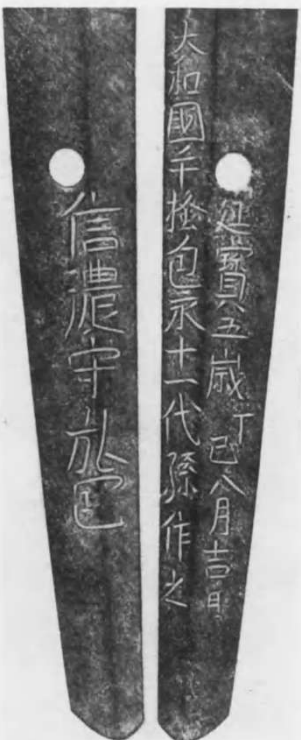 延寶五歳丁巳八月吉日
大和國手搔包永十一代孫作之
信濃守弘包